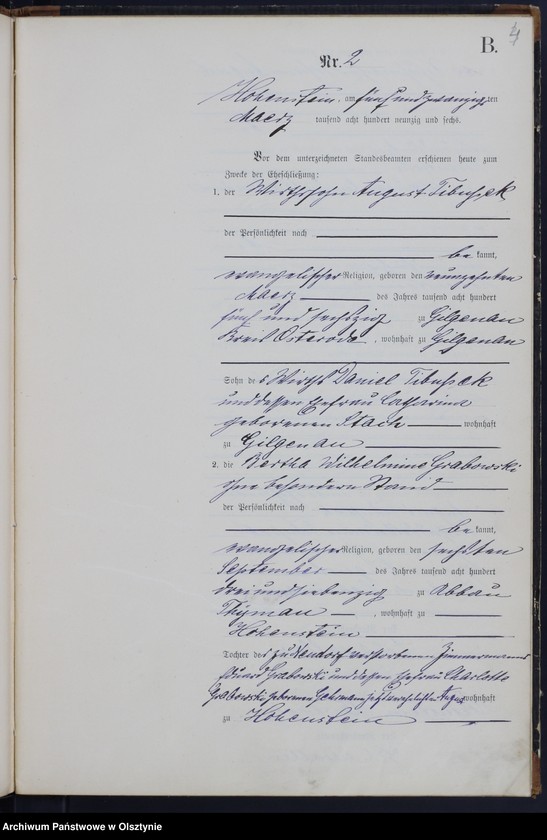 B.
4
Nr. 2
Hohenstein, am fünf und zwanzigsten
Maerz tausend acht hundert neunzig und sechs.
Vor dem unterzeichneten Standesbeamten erschienen heute zum
Zwecke der Eheschließung:
1. der Wirthssohn August
der Persönlichkeit nach
be kannt,
evangelischer Religion, geboren den neunzehnten
Maerz des Jahres tausend acht hundert
fünf und sechszig zu Gilgenau
Kreis Osterode, wohnhaft zu Gilgenau
Sohn des Wirths Daniel
und dessen Ehefrau Catharina
geborenen Stach wohnhaft
zu Gilgenau
2. die Bertha Wilhelmine Grabowski
ohne besondern Stand
der Persönlichkeit nach
be kannt,
evangelischer Religion, geboren den sechsten
September des Jahres tausend acht hundert
drei und siebenzig zu Abbau
Thymau, wohnhaft zu
Hohenstein
Tochter des zu verstorbenen Zimmermanns
Eduard Grabowski und dessen Ehefrau Charlotte
Grabowski geborenen jetzt verehelichten wohnhaft
zu Hohenstein
Archiwum Państwowe w Olsztynie